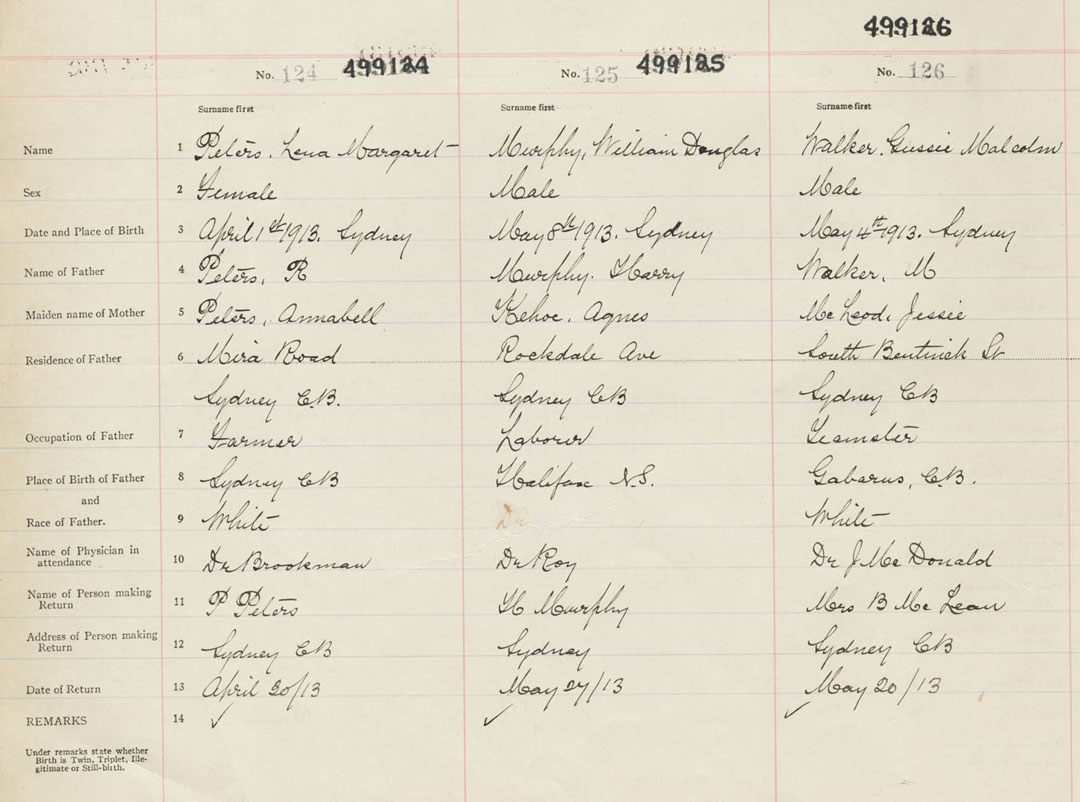 499126
No. 124 499124 No. 125 499125 No. 126
Surname first Surname first Surname first
Name 1 Peters, Lena Margaret Murphy, William Douglas Walker, Gussie Malcolm
Sex 2 Female Male Male
Date and Place of Birth 3 April 1st 1913. Sydney May 8th 1913. Sydney May 4th 1913. Sydney
Name of Father 4 Peters, R Murphy. Harry Walker, M
Maiden name of Mother 5 Peters, Annabell Kehoe, Agnes McLeod, Jessie
Residence of Father 6 Mira Road Rockdale Ave South Bentinck St
Sydney C.B. Sydney CB Sydney CB
Occupation of Father 7 Farmer Laborer Teamster
Place of Birth of Father 8 Sydney CB Halifax N.S. Gabarus, C.B.
and
Race of Father. 9 White White
Name of Physician in
attendance 10 Dr Brookman Dr Roy Dr J McDonald
Name of Person making
Return 11 P Peters H Murphy Mrs B McLean
Address of Person making
Return 12 Sydney CB Sydney Sydney CB
Date of Return 13 April 20/13 May 27/13 May 20/13
REMARKS 14 ✓ ✓ ✓
Under remarks state whether
Birth is Twin, Triplet, Ille-
gitimate or Still-birth.